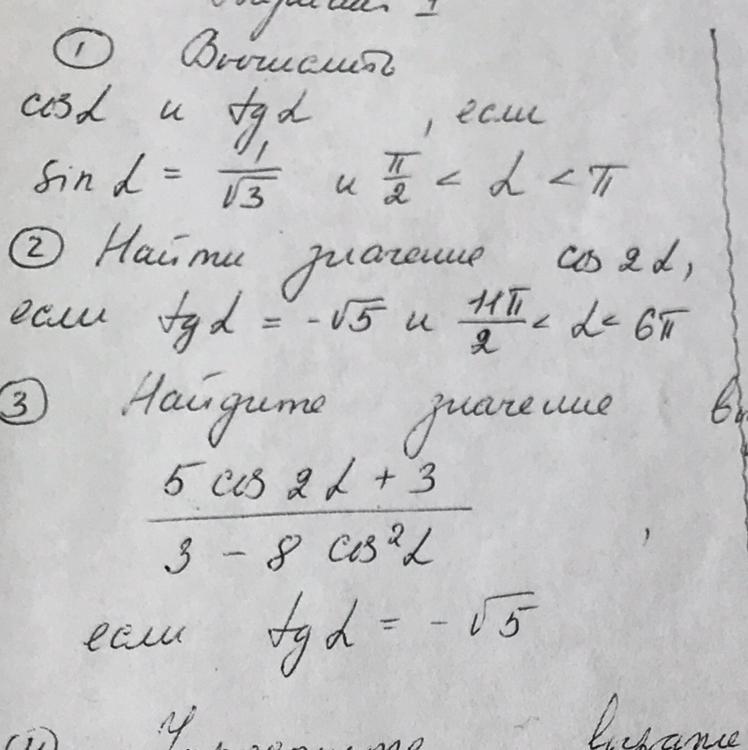 ① Вычислить
cos α и tg α, если
sin α = 1/√3 и π/2 < α < π
② Найти значение cos 2α,
если tg α = -√5 и 11π/2 < α < 6π
③ Найдите значение
5 cos 2α + 3
3 - 8 cos²α,
если tg α = -√5